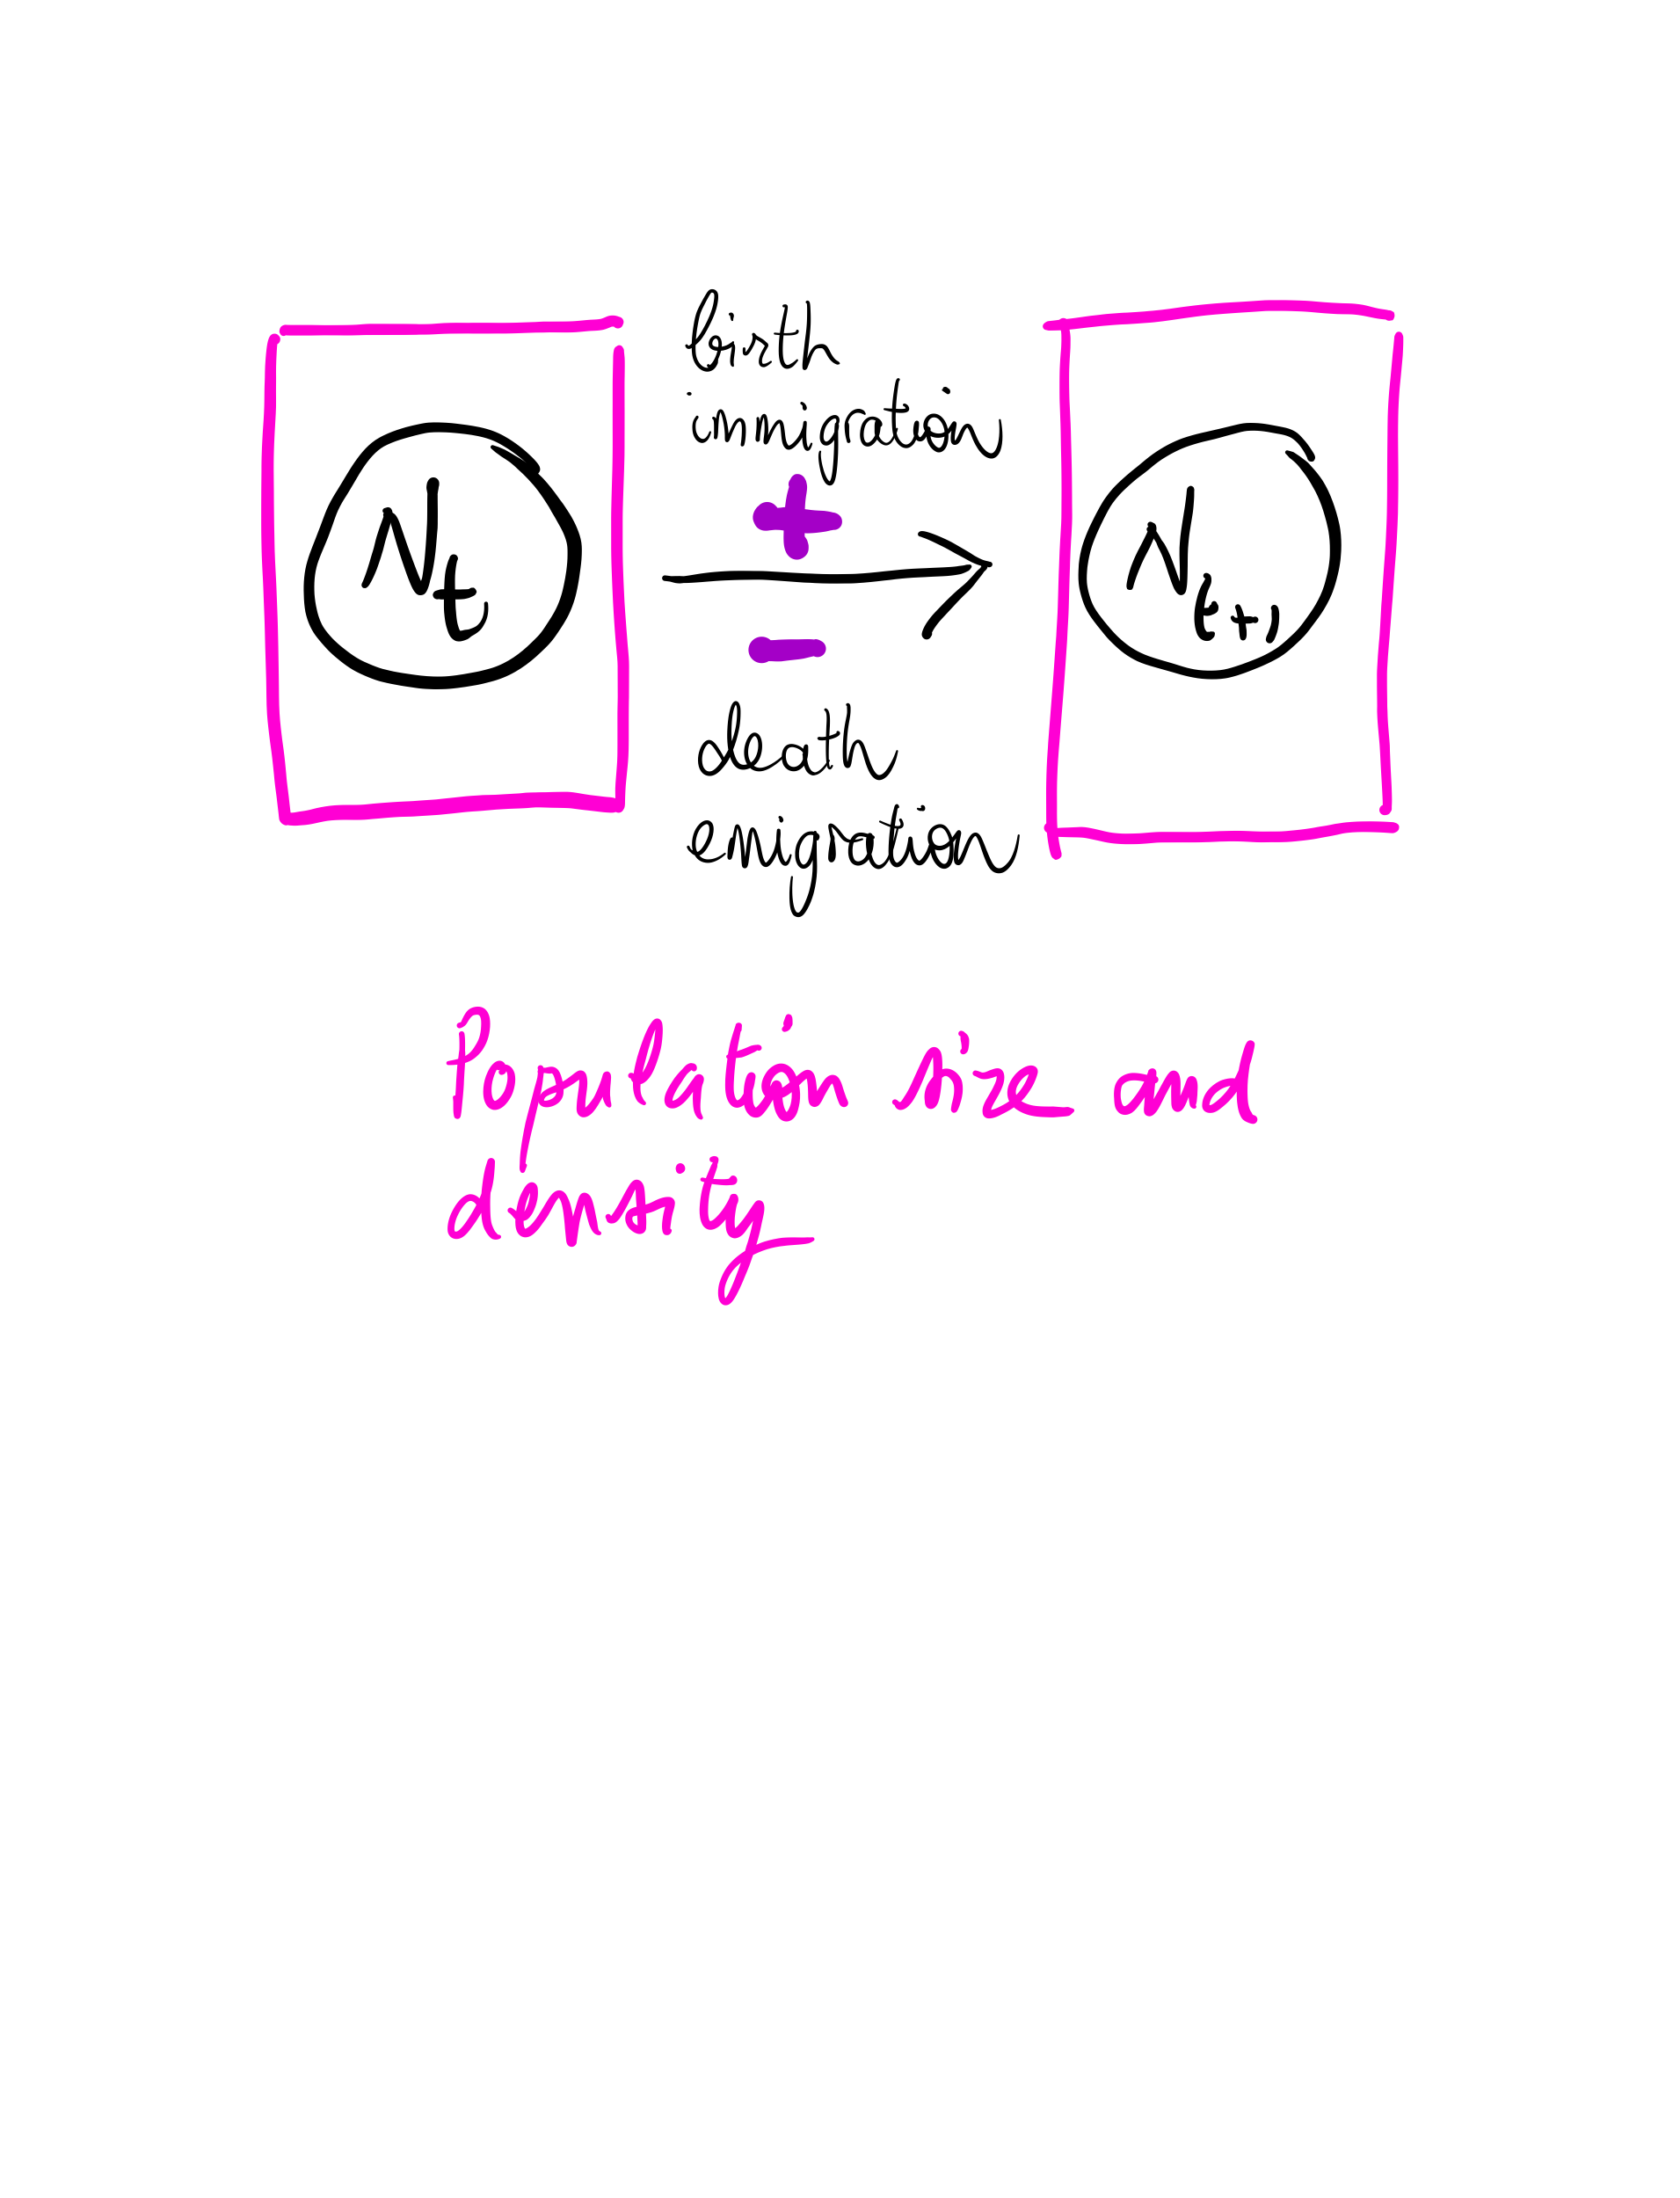 birth
immigration
+
N_t
N_{t+1}
-
death
emigration
Population size and
density